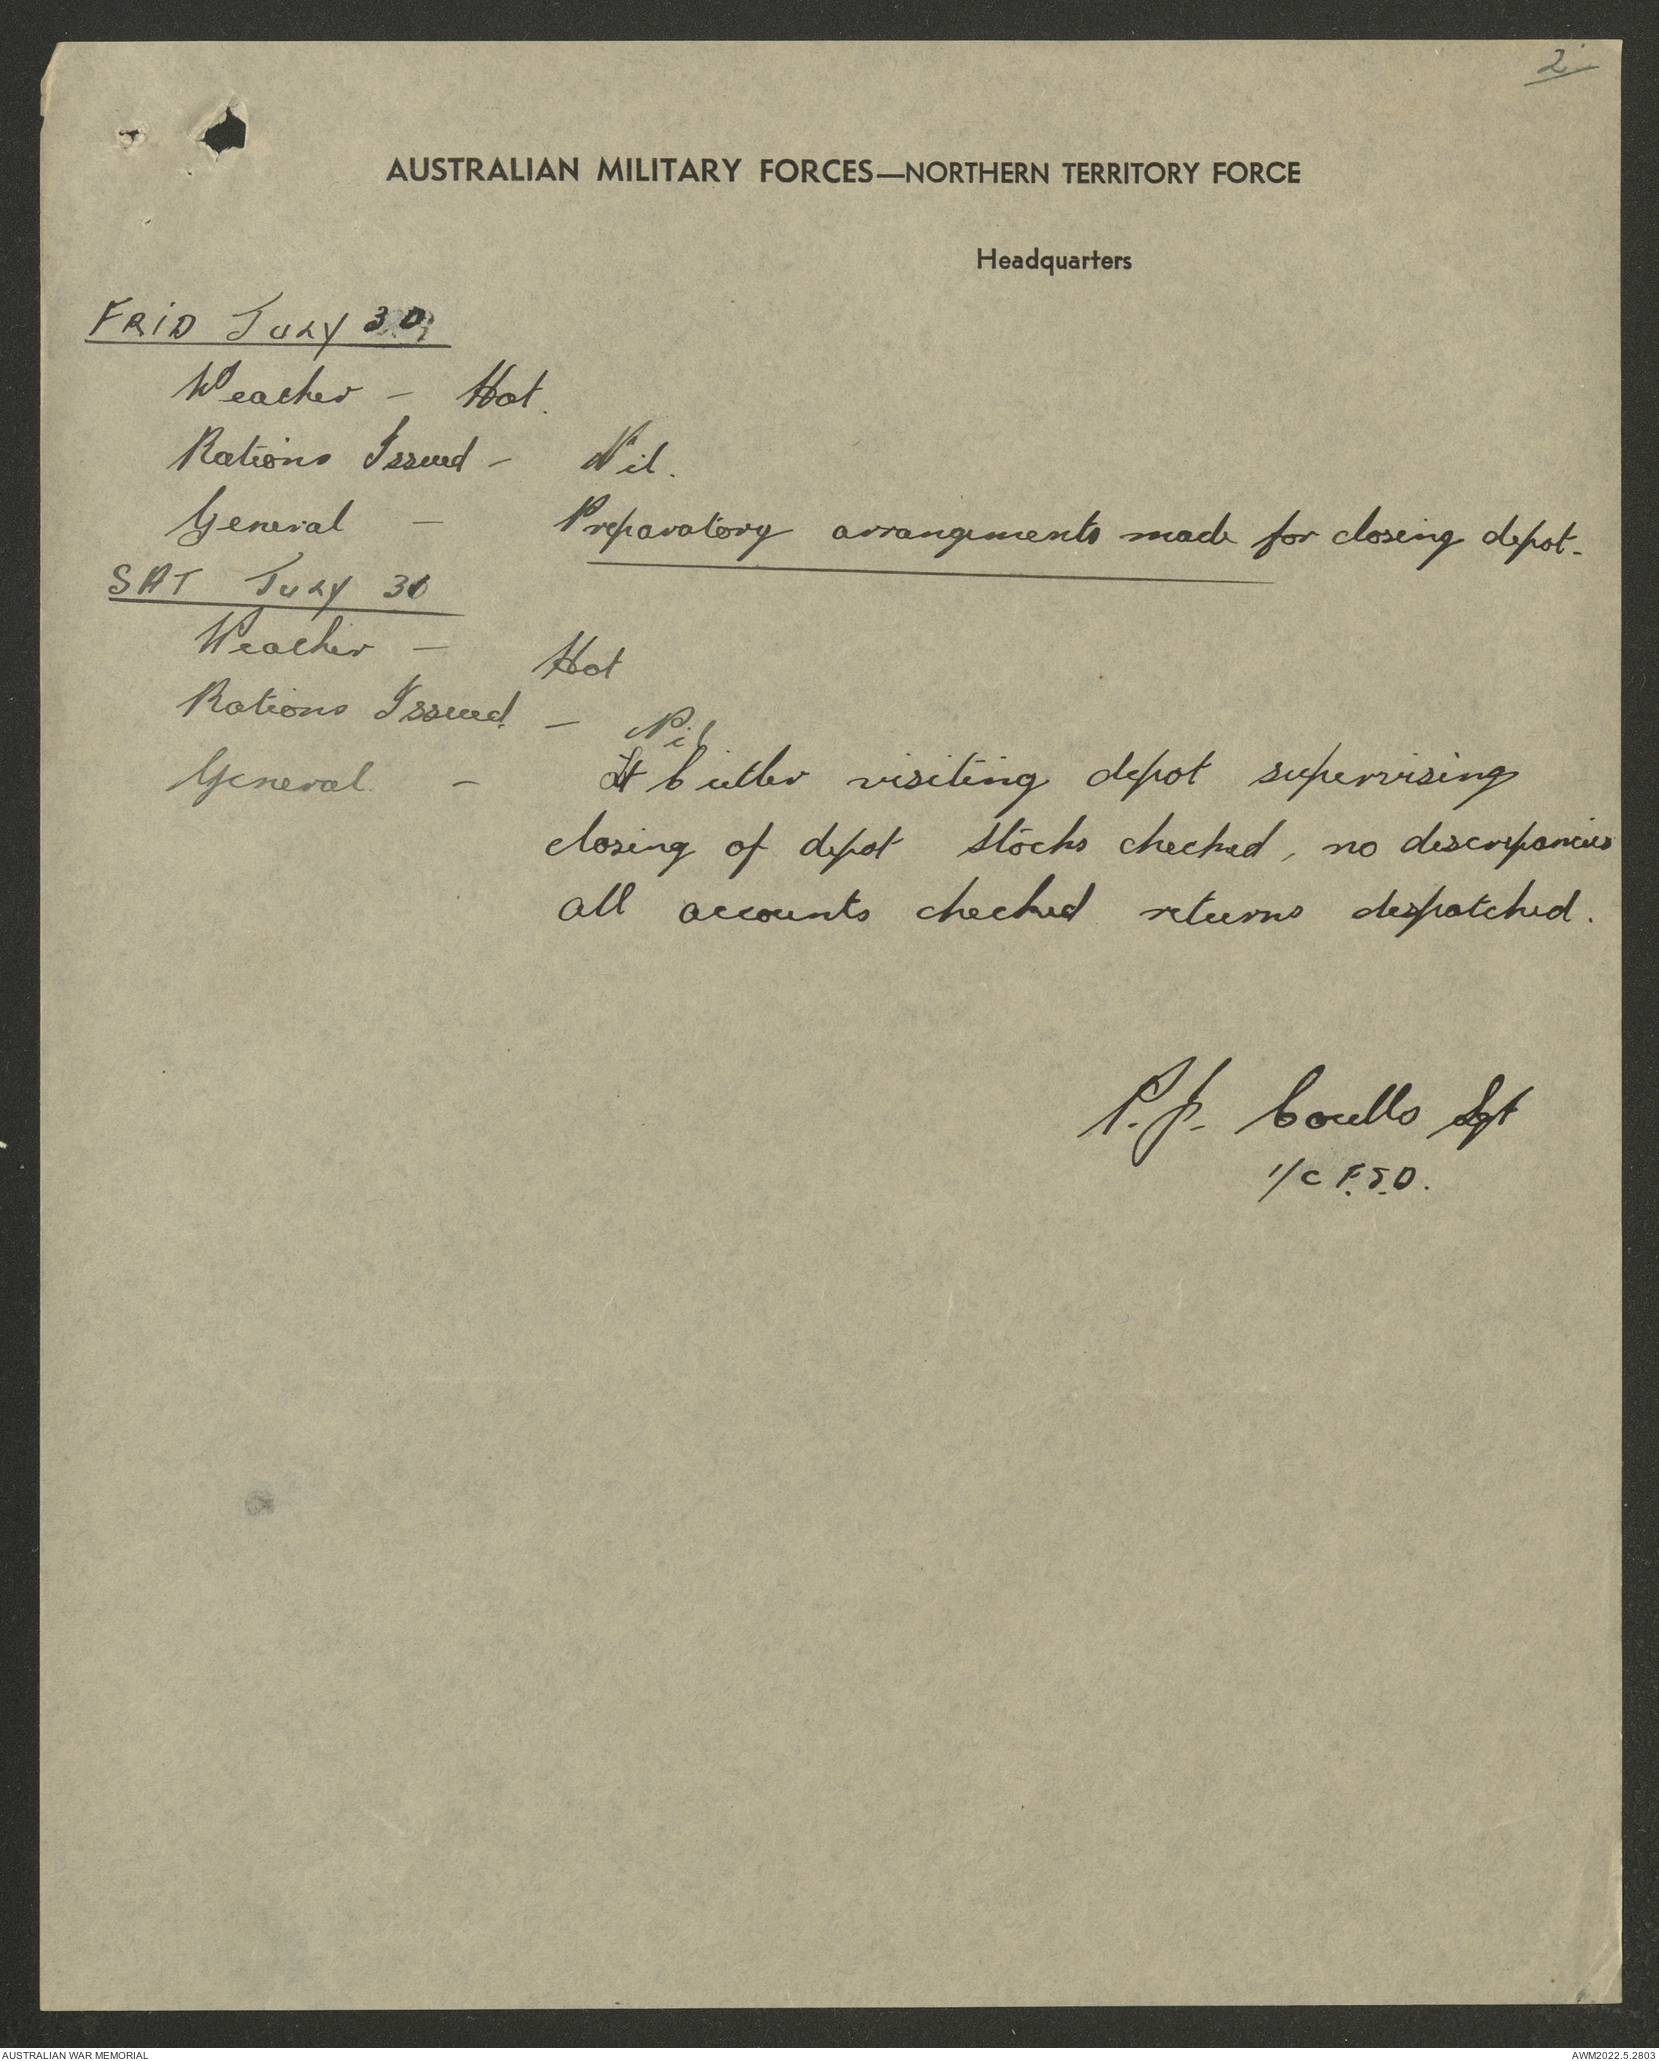 2.
AUSTRALIAN MILITARY FORCES—NORTHERN TERRITORY FORCE
Headquarters
FRID JULY 30
Weather - Hot.
Rations Issued - Nil.
General - Preparatory arrangements made for closing depot.
SAT JULY 31
Weather - Hot
Rations Issued. - Nil
General. - Lt Cutler visiting depot supervising
closing of depot stocks checked, no discrepancies
all accounts checked returns despatched.
P.J. Coutts Sgt
I/C F.S.D.
AUSTRALIAN WAR MEMORIAL
AWM2022.5.2803